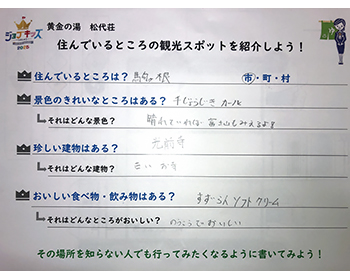 ジョブキッズ
黄金の湯 松代荘
住んでいるところの観光スポットを紹介しよう!
住んでいるところは? 駒ヶ根 市・町・村
景色のきれいなところはある? 千じょうじきカール
それはどんな景色? 晴れていれば富士山もみえるよ
珍しい建物はある? 光前寺
それはどんな建物?
おいしい食べ物・飲み物はある? すずらんソフトクリーム
それはどんなところがおいしい? のうこうでおいしい
その場所を知らない人でも行ってみたくなるように書いてみよう!